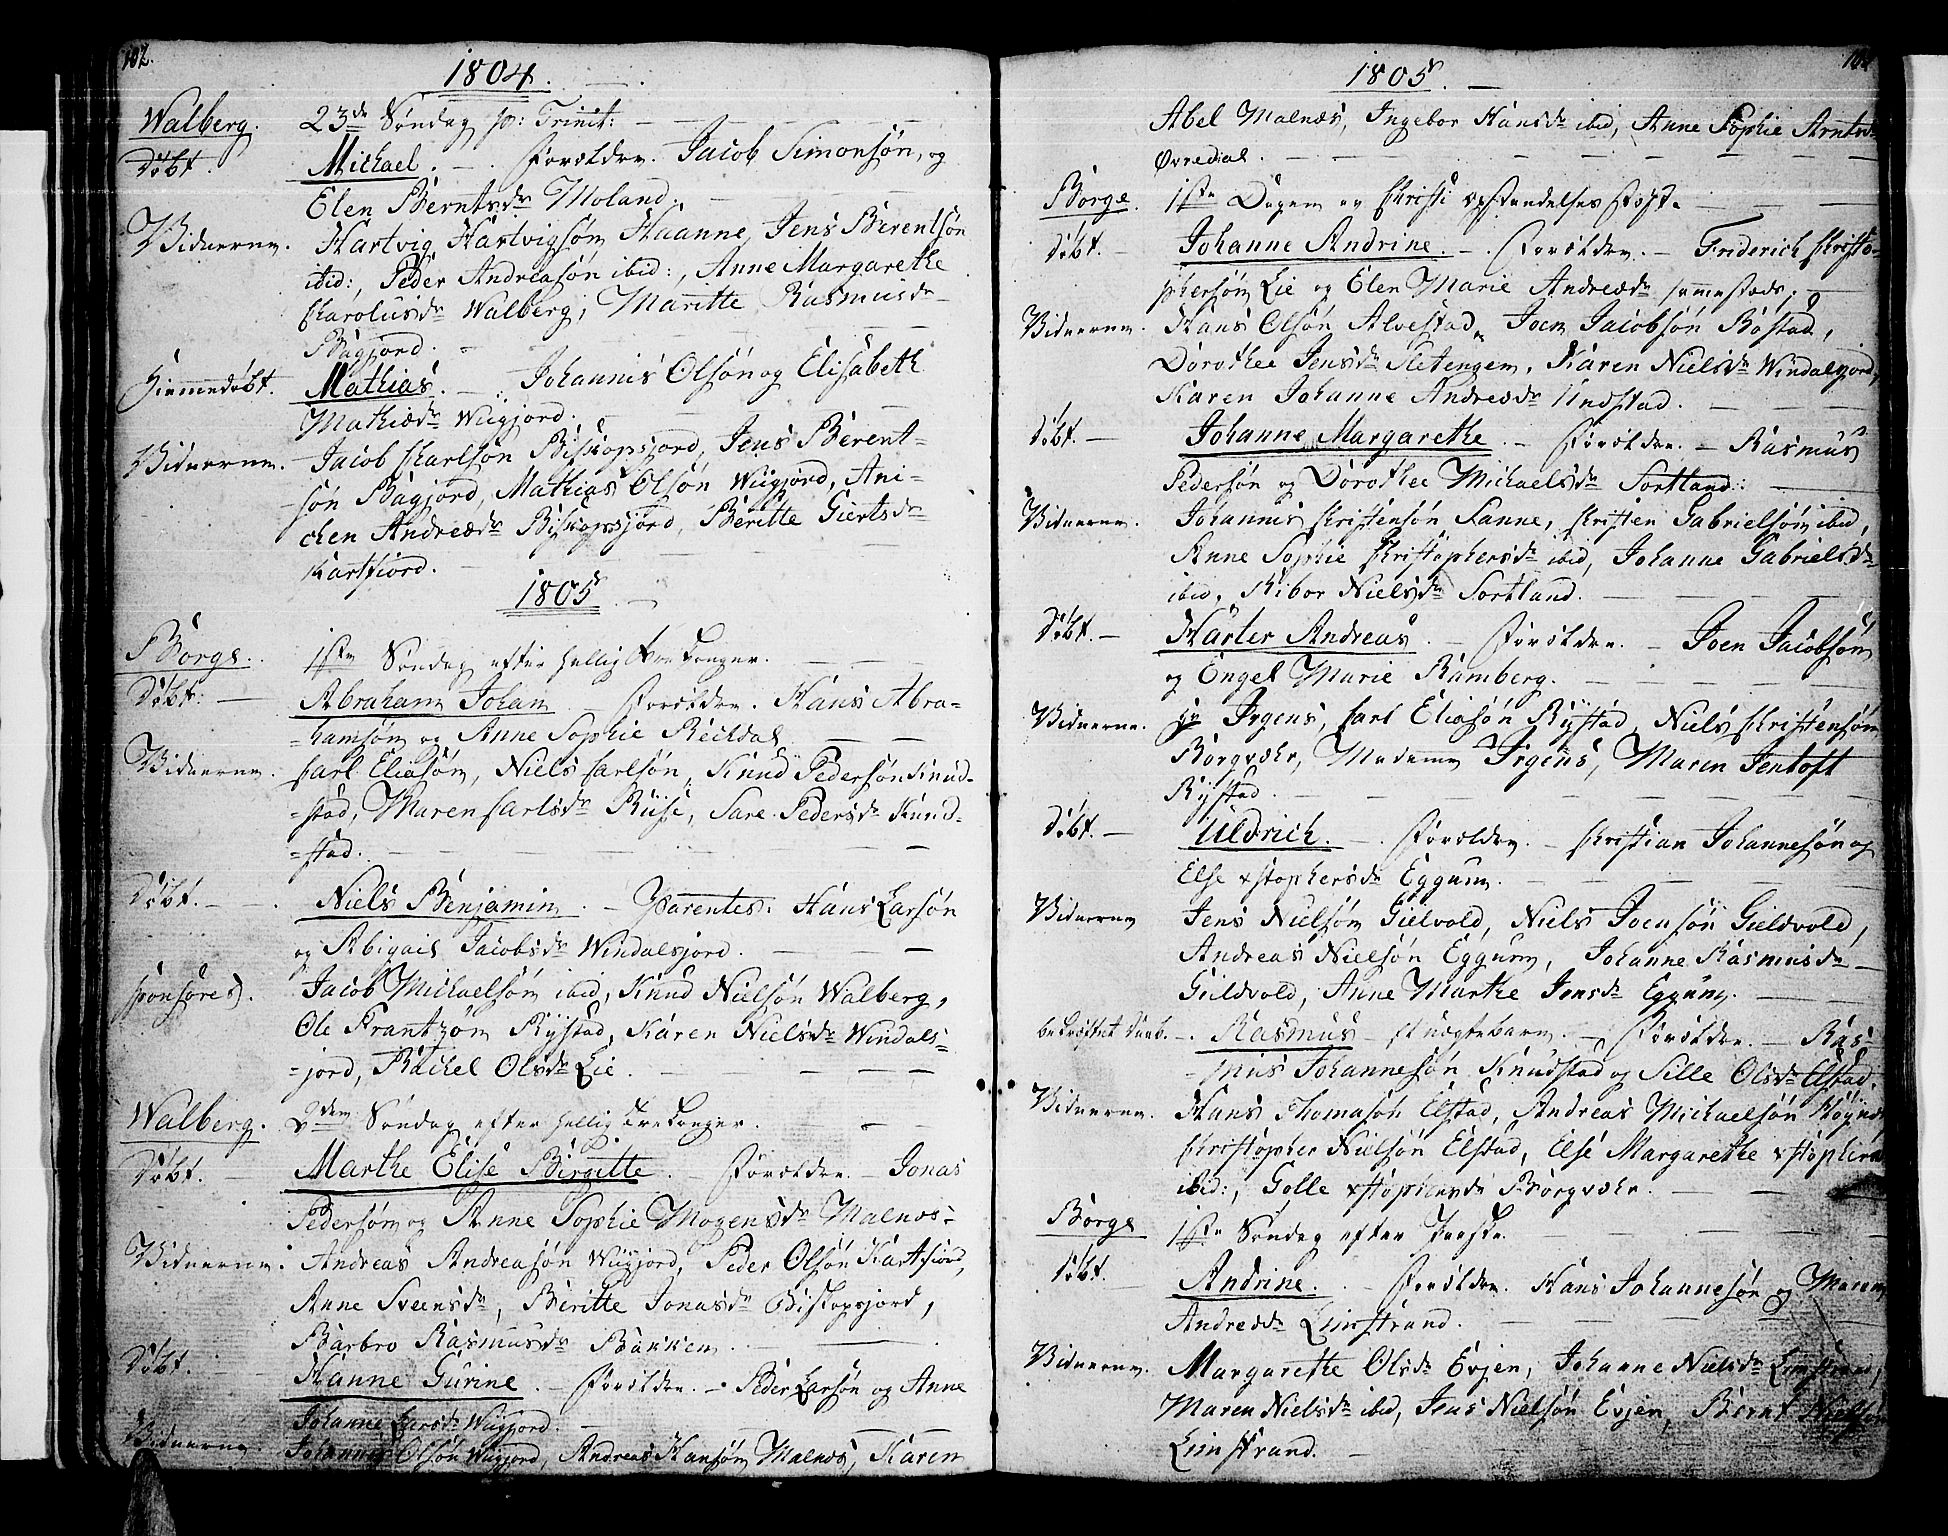 102.
1804.
Walberg. 23de Søndag p: Trinit:
Døbt. Michael. Forældre. Jacob Simonsøn, og
Elen Berntsdr Moland.
Vidnerne. Hartvig Hartvigsøn Haanne, Jens Berentsøn
ibid:, Peder Andreasøn ibid:, Anne Margarethe
Karolusdr Walberg, Maritte Rasmusdr
Bagjord.
Hiemmedøbt. Mathias. Johannis Olsøn og Elisabeth
Mathiædr Wiigjord.
Vidnerne. Jacob Karlsøn Biskopsjord, Jens Berent-
søn Bagjord, Mathias Olsøn Wiigjord, Ani-
chen Andreædr Biskopsjord, Beritte Giertsdr
Kartfiord.
1805
Borge. 1ste Søndag efter Hellig Tre Konger.
Døbt. Abraham Johan Forældre. Hans Abra-
hamsøn og Anne Sophie Reikdal
Vidnerne. Carl Eliasøn, Niels Carlsøn, Knud Pedersøn Knud-
stad, Maren Carlsdr Ruse, Sare Pedersdr Knud-
stad.
Døbt. Niels Benjamin. Parentes: Hans Larsøn
og Abigail Jacobsdr Windalsjord.
Sponsores). Jacob Michaelsøn ibid, Knud Nielsøn Walberg,
Ole Frantzøn Rystad, Karen Nielsdr Windals-
jord, Rachel Olsdr Lie.
Walberg. 2den Søndag efter Hellig Trekonger.
Døbt. Marthe Elise Birgitte. Forældre. Jonas
Pedersøn og Anne Sophie Mogensdr Malnos-
Vidnerne. Andreas Andreasøn Wiigjord, Peder Olsøn Kartfiord,
Anne Svensdr, Beritte Jonasdr Biskopsjord,
Barbro Rasmusdr Bakken.
Døbt. Hanne Gurine. Forældre. Peder Larsøn og Anne
Johanne Larsdr Wiigjord.
Vidnerne. Johannis Olsøn Wiigjord, Andreas Hansøn Malnos, Karen
1805.
Abel Malnæs, Ingebor Hansdr ibid, Anne Sophie Arntsdr
Øvredal.
Borge. 1ste Dagen og Christi opstandelses fest.
Døbt. Johanne Andrine. Forældre. Friderich Christo-
phersøn Lie og Elen Marie Andreædr sammesteds.
Vidnerne. Hans Olsøn Alvestad, Joen Jacobsøn Bøstad,
Dorothee Jensdr Sletengen, Karen Nielsdr Windalsjord,
Karen Johanne Andreædr Unstad.
Døbt. Johanne Margarethe. Forældre. Rasmus
Pedersøn og Dorothee Michaelsdr Sortland.
Vidnerne. Johannis Christensøn Sanne, Christen Gabrielsøn ibid,
Anne Sophie Christophersdr ibid, Johanne Gabrielsdr
ibid, Kibor Nielsdr Sortland.
Døbt. Harter Andreas. Forældre. Joen Jacobsøn
og Engel Marie Ramberg.
Vidnerne. Hr Irgens, Carl Eliasøn Rystad, Niels Christensøn
Borgvæhr, Madame Irgens, Maren Jentoft
Rystad.
Døbt. Uldrich. Forældre. Christian Johannesøn og
Else xstophersdr Eggum.
Vidnerne Jens Nielsøn Gielvold, Niels Joensøn Gieldvold,
Andreas Nielsøn Eggum, Johanne Rasmusdr
Gieldvold, Anne Marthe Jensdr Eggum.
bekræftet Daab. Rasmus et uægte barn. Forældre. Ras-
mus Johannesøn Knudstad og Sille Olsdr Elstad.
Vidnerne. Hans Thomasøn Elstad, Andreas Michaelsøn
Christopher Nielsøn Elstad, Else Margarethe xstophersdr
ibid:, Golle xstophersdr Borgvæhr.
Borge 1ste Søndag efter Paaske.
Døbt. Andrine. Forældre. Hans Johannesøn og Maren
Andreædr Limstrand.
Vidnerne. Margarethe Olsdr Evjen, Johanne Nielsdr Limstrand,
Maren Nielsdr ibid, Jens Nielsøn Evjen, Bernt Nielsøn
Limstrand.